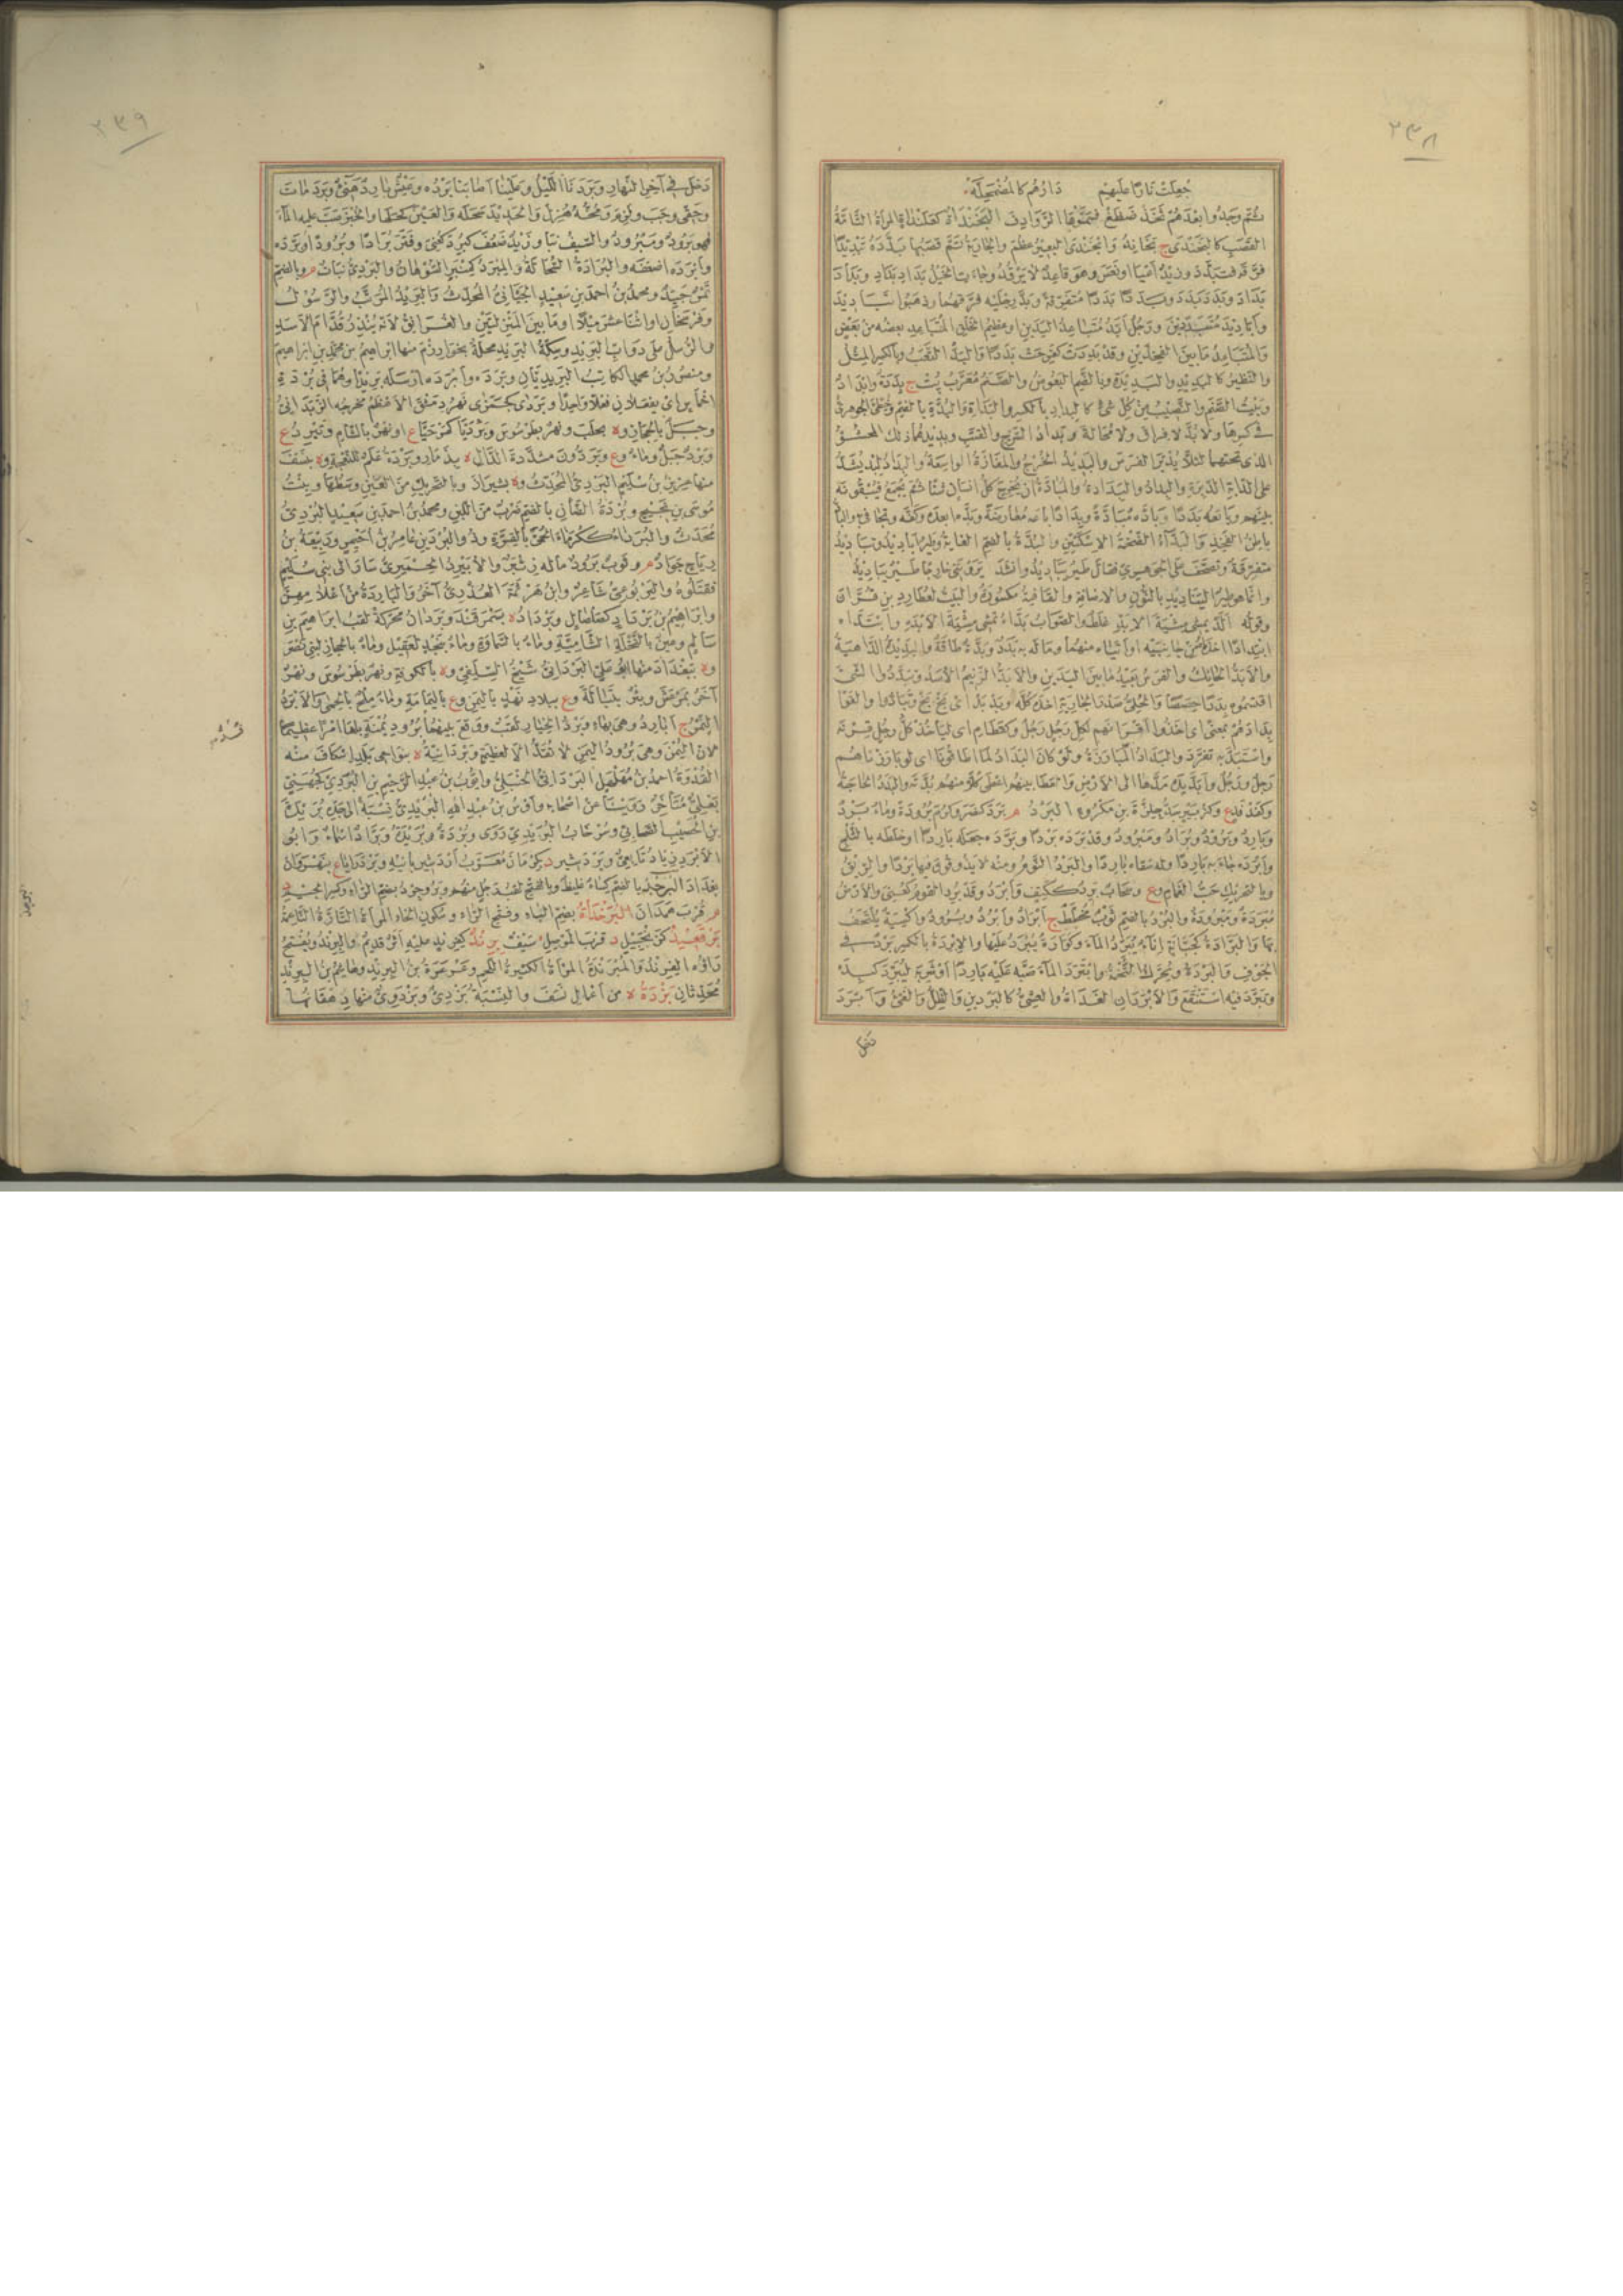 ٢٣٨
جعلت نارًا عليهم دارهم كالمضمحلّه
ثم وجدوا بعدهم ثخذ ضظغ فتمموها الروادف البَخَنْداة كعلنداة المرأة التامة
القصب كالبخندى ج بخاند وابخندى البعير عظم والجارية تم قصبها بدّده تبديدًا
فرقه فتبدد وزيد أعيا او نعس وهو قاعد لا يرقد وجاءت الخيل بداد بداد وبداد
بداد وبدد بدد وبددًا بددًا متفرقة وبدّ رجليه فرقهما وذهبوا تباديد
وأباديد متبددين ورجل أبدّ متباعد اليدين او عظيم الخلق المتباعد بعضه من بعض
والمتباعد ما بين الفخذين وقد بددت كفرحت بددًا والبدّ التعب وبالكسر المثل
والنظير كالبديد والبديدة وبالضم البعوض والصنم معرب بت ج بددة وابداد
وبيت الصنم والنصيب من كل شئ كالبداد بالكسر والبدادة والبدة بالضم وخطئ الجوهري
في كسرها ولا بدّ لا فراق ولا محالة وبداد السرج والقتب وبديدهما ذلك المحشوّ
الذي تحتهما لئلا يدبر الفرس والبديد الخرج والمفازة الواسعة والبداد لبد يشدّ
على الدابة الدبرة والبداد والبدادة والمبادّة أن يخرج كل انسان شيئا ثم يجمع فينفقونه
بينهم وبايعه بددًا وبادّه مبادّة وبدادًا باعه معارضة وبدّه ابعده وكفّه وتجافى والبادّ
باطن الفخذ والبدّاء الضخمة الاسكتين والبدّة بالضم الغاية وطير أباديد وتباديد
متفرقة وتصحّف على الجوهري فقال طير يباديد وانشد يرونني خارجًا طير يباديد
وانما هو طير اليناديد بالنون والاضافة والقافية مكسورة والبيت لعطارد بن قرّان
وقوله ألدّ يمشي مشية الابدّ غلط والصواب بدّاء تمشي مشية الابدّ وابتداه
ابتدادًا أخذاه من جانبيه او أتياه منهما وما له به بدد وبدّة طاقة والبديدة الداهية
والابدّ الحائك والفرس بعيد ما بين اليدين والأبدّ الزنيم الأسد وتبددوا الشئ
اقتسموه بددًا حصصًا والحلي صدر الجارية اخذه كله وبد بد اى بخ بخ وتبادّوا والقوا
بدادهم بمعنى اى اخذوا أقرانهم لكل رجل رجل وكقطام اى ليأخذ كل رجل قرنه
واستبدّ به تفرد والبداد المبارزة ولو كان البداد لما اطاقونا اى لو بارزناهم
رجل ورجل وأبدّ يده مدّها الى الارض والعطاء بينهم اعطى كلا منهم بدّته والبدد الحاجة
وكفدفد ع وكزبير بن مكروه البرد م برد كنصر وكرم برودة وماء برد
وبارد وبرود وبراد ومبرود وقد برده بردًا وبرّده جعله باردًا او خلطه بالثلج
وأبرده جاء به باردًا وله سقاه باردًا والبرد النوم ومنه لا يذوقون فيها بردًا والريق
وبالتحريك حبّ الغمام وع وسحاب برد ككتف وأبرد وقد برد القوم كعُنِي والارض
مبردة ومبرودة والبرد بالضم ثوب مخطط ج أبراد وأبرد وبرود واكسية يلتحف
بها والبرّادة كجبّانة إناء يبرد الماء وكوّارة يبرد عليها والإبردة بالكسر برد في
الجوف والبردة وتحرك التخمة وابترد الماء صبّه عليه باردًا أو شربه ليبرد كبده
وتبرد فيه استنقع والابردان الغداة والعشي كالبردين والظل والفئ وابرد
دخل
٢٣٩
دخل في آخر النهار وبردنا الليل وعلينا أصابنا برده وعيش بارد هنئ وبرد مات
وحقي وجب ولزم ومخّه هزل والحديد سحله والعين كحلها والخبز صبّ عليه الماء
فهو برود ومبرود والسيف نبا وزيد ضعف كبُرد كعُنِي وفتر برادًا وبرودًا وبرّده
وأبرده اضعفه والبرادة السحالة والمبرد كمنبر السوهان والبردي نبات م وبالضم
تمر جيد ومحمد بن احمد بن سعيد الجيّاني المحدث والبريد المرتّب والرسول
وفرسخان او اثنا عشر ميلا او ما بين المنزلين والفرانق لأنه ينذر قدّام الاسد
والرسل على دوابّ البريد وسكة البريد محلة بخوارزم منها ابراهيم بن محمد بن ابراهيم
ومنصور بن محمد الكاتب البريديان وبرده وأبرده ارسله بريدًا وهما في بردة
اخماس اى يفعلان فعلا واحدًا وبردى كجمزى نهر دمشق الاعظم مخرجه الزبداني
وجبل بالحجاز وة بحلب ونهر بطرسوس وبرديّا ع او نهر بالشام وتبرد ع
وبرد جبل وماء وع وبردّون مشددة الدال ة بذمار وبردة علم للنعجة وة بنسف
منها عزيز بن سليم البردي المحدث وة بشيراز وبالتحريك من العين وسطها وبنت
موسى بن يحيى وبردة الضأن بالضم ضرب من اللبن ومحمد بن احمد بن سعيد البردي
محدث والبرداء ككرماء الحمّى بالقرّة وذو البردين عامر بن أحيمر وربيعة بن
رياح جواد م وثوب برود ما له زئبر والأبيرد الحميري سار الى بني سليم
فقتلوه واليربوعي شاعر وابن هرثمة العذري آخر والباردة من أعلامهن
وابراهيم بن برداد كصلصال وبرداد ة بسمرقند وبردان محركة لقب ابراهيم بن
سالم وعين بالنخلة الشامية وماء بالسماوة وماء بنجد لعقيل وماء بالحجاز لبني نصر
وة ببغداد منها ابو علي البرداني شيخ السلفي وة بالكوفة ونهر بطرسوس ونهر
آخر بمرعش وبئر بتبالة وع ببلاد نهد باليمن وع باليمامة وماء ملح بالحمى والأبرد
النمر ج أبارد وهي بهاء وبرد الخيار لقب ووقع بينهما قدّ برود يمنة بلغا امرًا عظيمًا
لان اليمن وهي برود اليمن لا تقدّ الا لعظيم وبردانية ة بنواحي بلد اسكاف منه
القدوة احمد بن مهلهل البرداني الحنبلي وايوب بن عبد الرحيم بن البردي كجهني
بعلي متأخر روينا عن اصحابه وأوس بن عبد الله البريدي نسبة الى جده بريدة
بن الحصيب الصحابي وسرخاب البريدي روى وبردة وبريدة وبرّاد اسماء وابو
الأبرد زياد تابعي وبردشير د بكرمان معرب أزدشير بانيه وبردرايا ع بنهروان
بغداد البرجد بالضم كساء غليظ وبالفتح لقب رجل منهم وبروجرد بضم الراء وكسر الجيم د
م قرب همدان البرخداة بضم الباء وفتح الراء وسكون الخاء المرأة التارّة الناعمة
برقعيد كزنجبيل د قرب الموصل سيف برند كفرند عليه أثر قديم والبرند ويفتح
راؤه الفرند والمبرندة المرأة الكثيرة اللحم وعرعرة بن البرند وهاشم بن البرند
محدثان بزدة ة من أعمال نسف والنسبة بزدي وبزدوي منها دهقانها